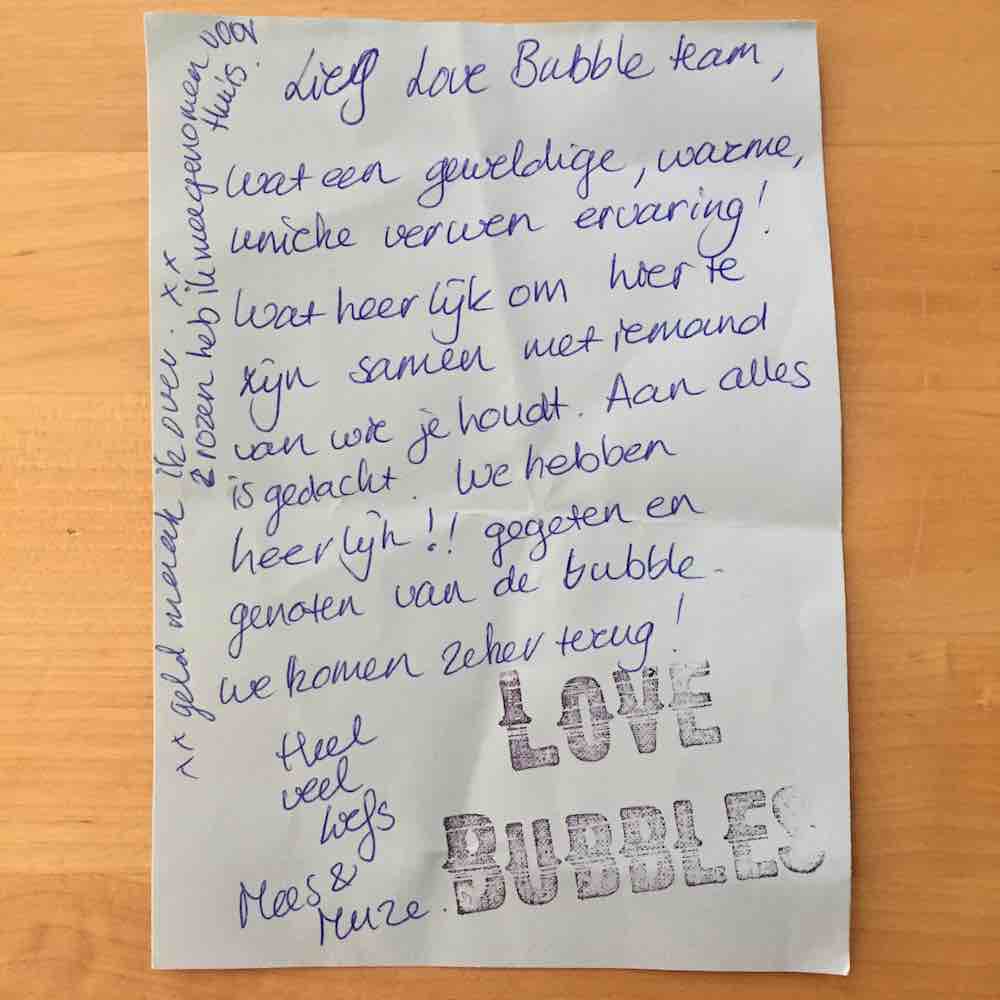 Lief Love Bubble team,
wat een geweldige, warme,
unieke verwen ervaring!
Wat heerlijk om hier te
zijn samen met iemand
van wie je houdt. Aan alles
is gedacht. We hebben
heerlijk!! gegeten en
genoten van de bubble.
we komen zeker terug!
Heel
veel
liefs
Mees &
Muze.
xx geld maak ik over. xx
2 rozen heb ik meegenomen voor
thuis.
LOVE
BUBBLES